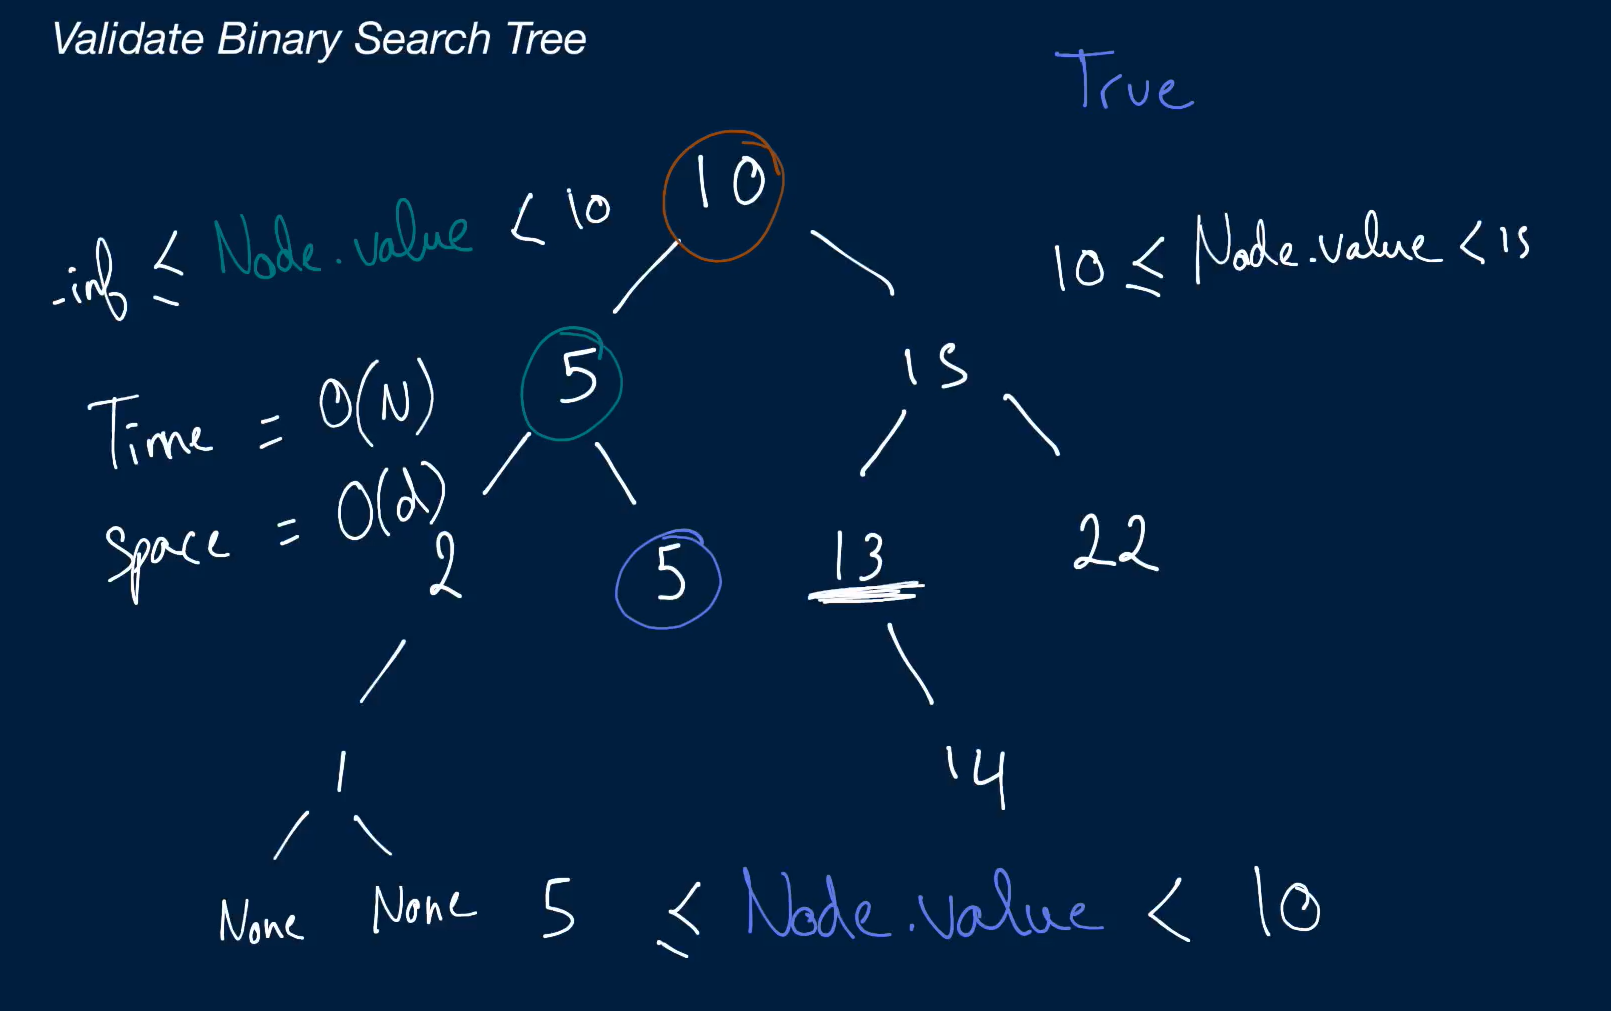 Validate Binary Search Tree
True
10
-inf ≤ Node.value < 10
10 ≤ Node.value < 15
5
15
Time = O(N)
Space = O(d)
2
5
13
22
1
14
None
None
5 ≤ Node.value < 10